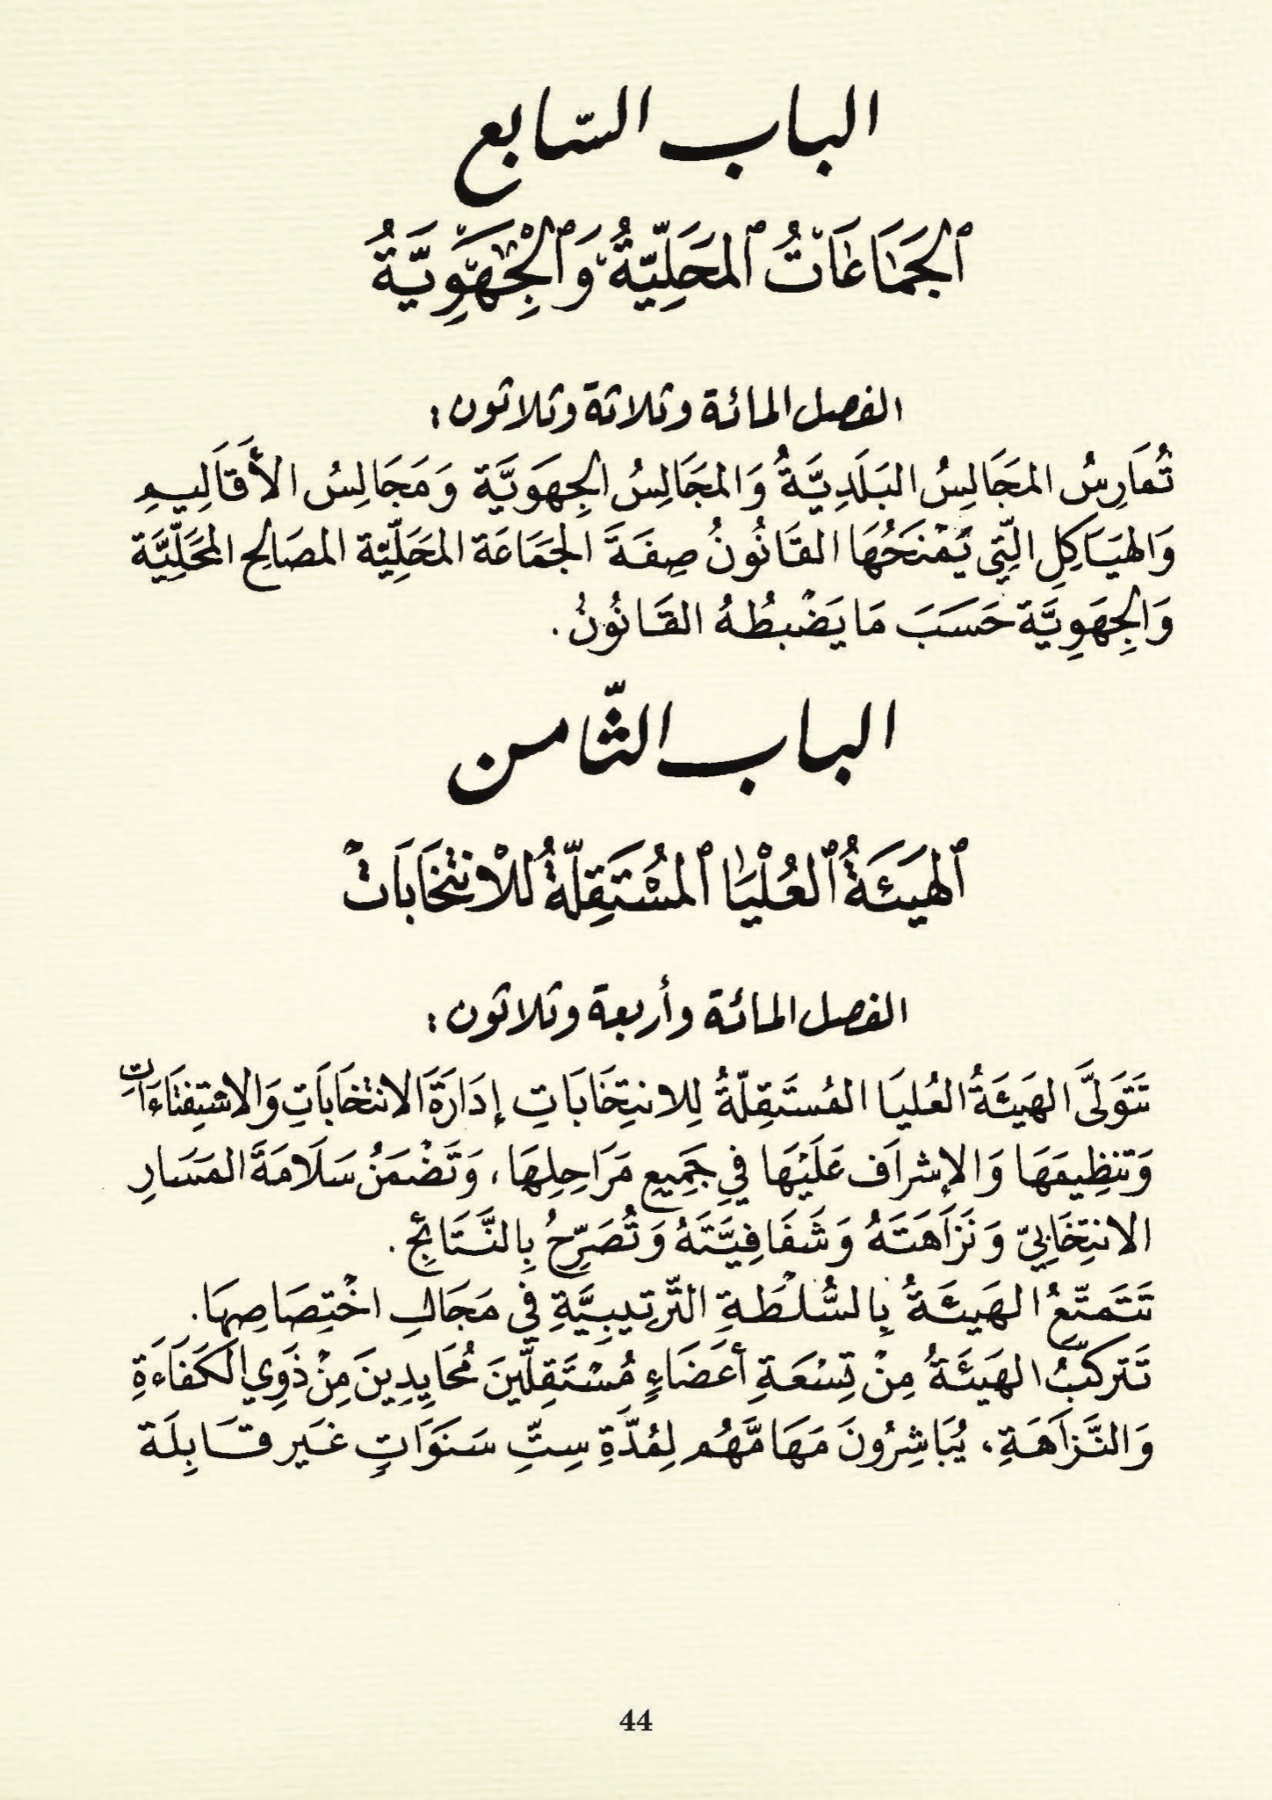 الباب السّابع
ٱلجَمَاعَاتُ ٱلمَحَلِّيَّةُ وَٱلْجِهَوِيَّةُ
الفصل المائة وثلاثة وثلاثون :
تُمَارِسُ المَجَالِسُ البَلَدِيَّةُ وَالمَجَالِسُ الجِهَوِيَّة وَمَجَالِسُ الأَقَالِيمِ
وَالهَيَاكِلِ الّتِي يَمْنَحُهَا القَانُونُ صِفَةَ الجَمَاعَة المَحَلِّيّة المصَالِح المَحَلِّيَّة
وَالجِهَوِيَّة حَسَبَ مَا يَضْبِطُهُ القَانُونُ .
الباب الثّامن
ٱلهَيَئَةُ ٱلعُلْيَا ٱلمُسْتَقِلّةُ للْانتخَابَاتْ
الفصل المائة وأربعة وثلاثون :
تَتَوَلَّى الهَيئَةُ العُليَا المُستَقِلّةُ لِلانتِخَابَاتِ إدَارَةَ الانتخَابَاتِ وَالاسْتِفتَاءَاتِ
وَتنظِيمَهَا وَالإشرَاف عَلَيْهَا فِي جَمِيعِ مَرَاحِلِهَا، وَتَضْمَنُ سَلَامَةَ المَسَارِ
الانتِخَابِيّ وَنَزَاهَتَهُ وَشَفَافِيَّتَهُ وَتُصَرِّحُ بِالنَّتَائِجِ .
تَتَمتّعُ الهَيئَةُ بِالسُّلْطَةِ التّرتِيبِيَّةِ فِي مَجَالِ اخْتِصَاصِهَا.
تَتَركّبُ الهَيَئَةُ مِنْ تِسْعَةِ أعَضَاءٍ مُسْتَقِلّينَ مُحَايِدِينَ مِنْ ذَوِي الكَفَاءَةِ
وَالنَّزَاهَةِ، يُبَاشِرُونَ مَهَامَّهُم لِمُدَّةِ سِتِّ سَنَوَاتٍ غَير قَابِلَة
44